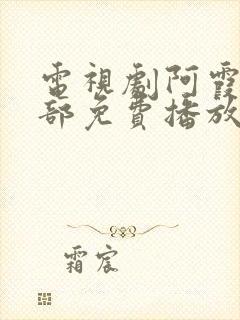 電視劇阿霞
部免費播放
霜宸